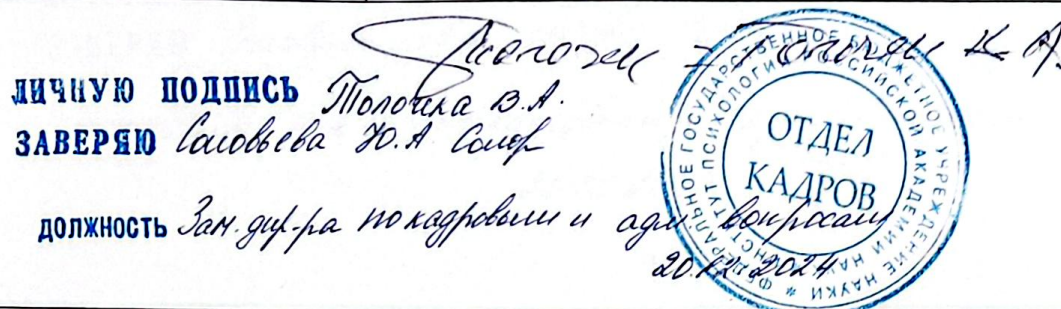 ЛИЧНУЮ ПОДПИСЬ Толочка В.А.
ЗАВЕРЯЮ Соловьева Ю.А
ДОЛЖНОСТЬ Зам. дир-ра по кадровым и адм вопросам
20.12.2024
ФЕДЕРАЛЬНОЕ ГОСУДАРСТВЕННОЕ БЮДЖЕТНОЕ УЧРЕЖДЕНИЕ НАУКИ *
ИНСТИТУТ ПСИХОЛОГИИ РОССИЙСКОЙ АКАДЕМИИ НАУК
ОТДЕЛ
КАДРОВ